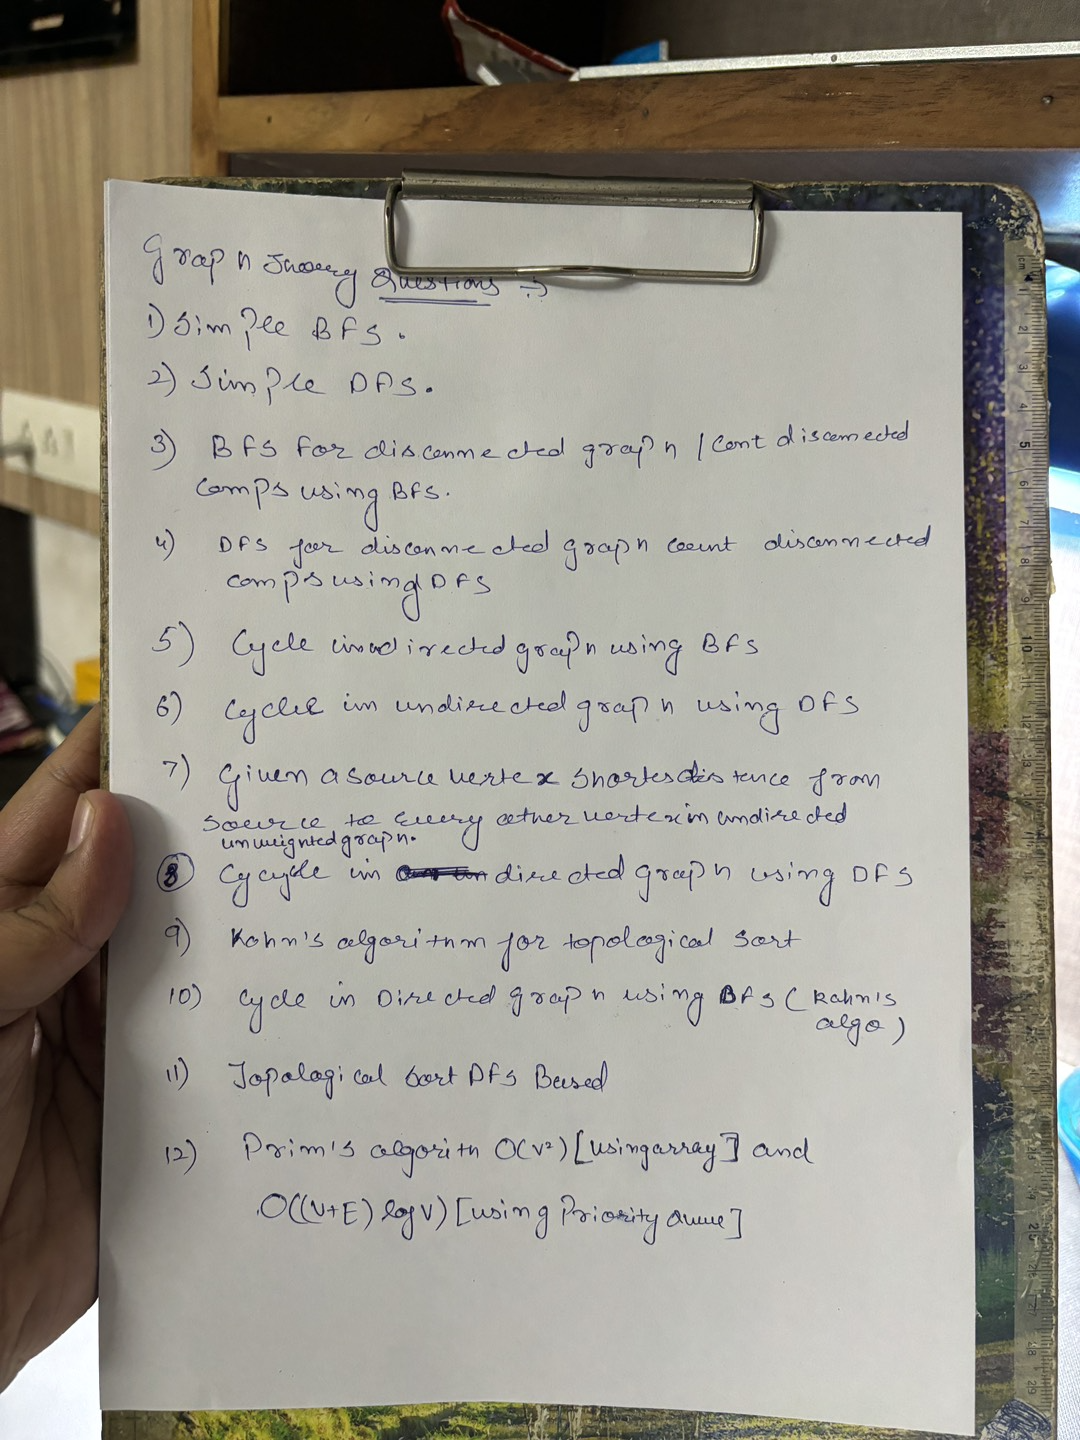 Graph Theory Questions :-
1) Simple BFS.
2) Simple DFS.
3) BFS for disconnected graph / Cont disconnected
Comps using BFS.
4) DFS for disconnected graph count disconnected
comps using DFS
5) Cycle in undirected graph using BFS
6) Cycle in undirected graph using DFS
7) Given a source vertex shortes distence from
source to every other vertex in undirected
unweighted graph.
8 Cycycle in directed graph using DFS
9) Kahn's algorithm for topological sort
10) Cycle in Directed graph using BFS ( Kahn's
algo )
11) Topological sort DFS Based
12) Prim's algorith O(V²) [using array] and
O((V+E) log V) [using Priority Queue]
cm 1 2 3 4 5 6 7 8 9 10